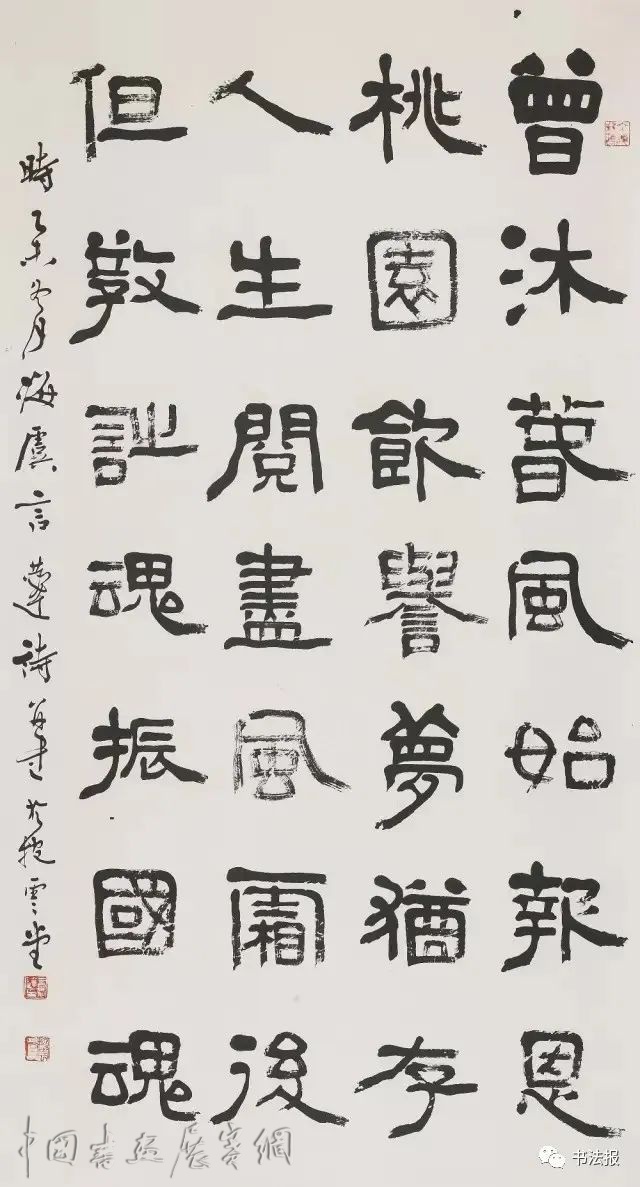 曾沐春風始報恩
桃園飲譽夢猶存
人生閱盡風霜後
但教詩魂振國魂
時乙未冬月海虞言恭達詩并書於抱雲堂
中國書畫展賽網
书法报